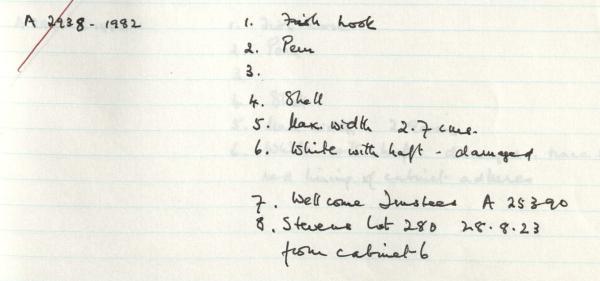 A 2938-1982
1. Fish hook
2. Peru
3.
4. Shell
5. Max. width 2.7 cms.
6. White with haft - damaged
7. Wellcome Trustees A 25390
8. Stevens Lot 280 28.8.23
from cabinet 6